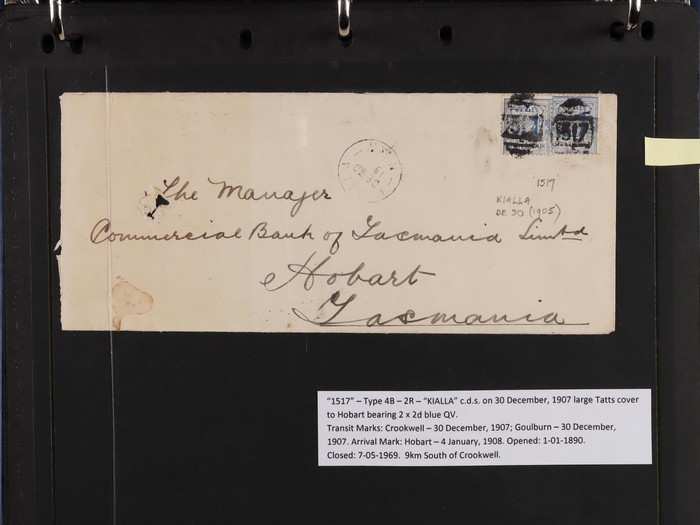 1517
The Manager
'1517'
KIALLA
DE 30 (1905)
Commercial Bank of Tasmania Limtd
Hobart
Tasmania
"1517" – Type 4B – 2R – "KIALLA" c.d.s. on 30 December, 1907 large Tatts cover
to Hobart bearing 2 x 2d blue QV.
Transit Marks: Crookwell – 30 December, 1907; Goulburn – 30 December,
1907. Arrival Mark: Hobart – 4 January, 1908. Opened: 1-01-1890.
Closed: 7-05-1969.  9km South of Crookwell.